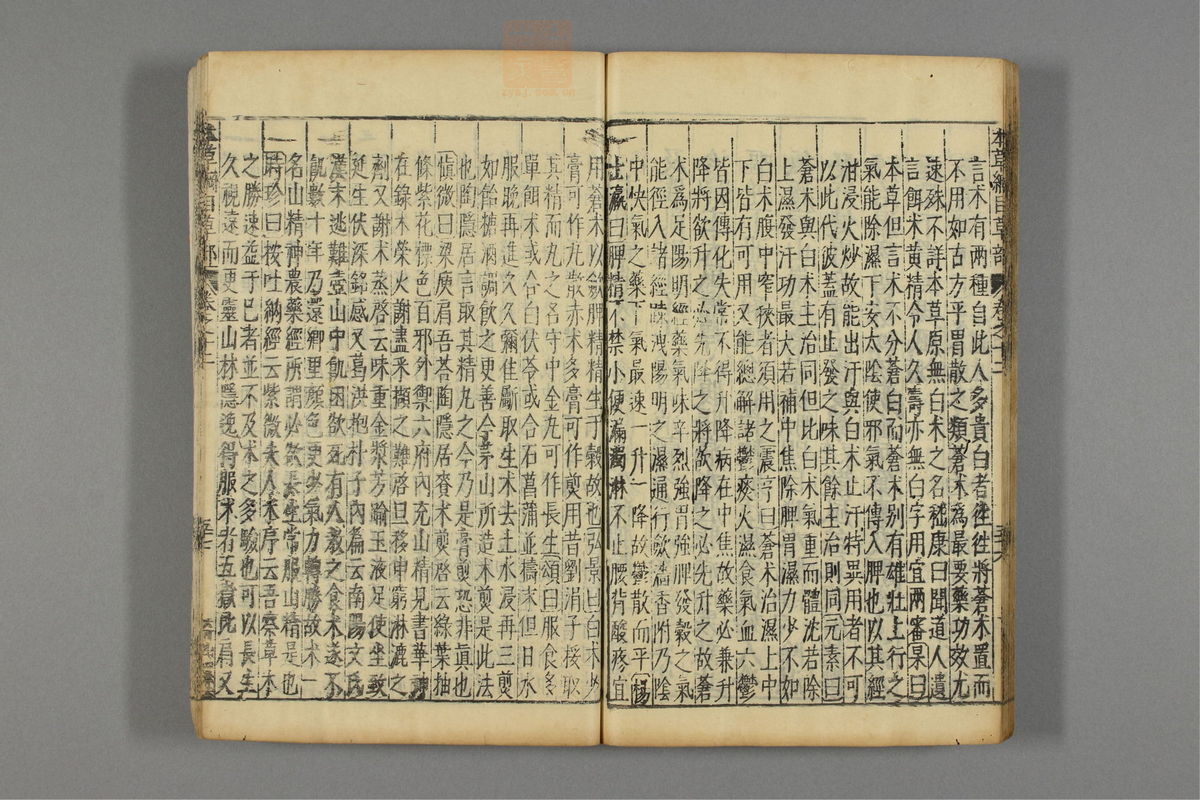 本草綱目草部 卷之十二
言术有兩種自此人多貴白者往往將蒼术置而
不用如古方平胃散之類蒼术爲最要藥功效尤
速殊不詳本草原無白术之名嵇康曰聞道人遺
言餌术黃精令人久壽亦無白字用宜兩審杲曰
本草但言术不分蒼白而蒼术别有雄壯上行之
氣能除濕下安太陰使邪氣不傳入脾也以其經
泔浸火炒故能出汗與白术止汗特異用者不可
以此代彼蓋有止發之味其餘主治則同元素曰
蒼术與白术主治同但比白术氣重而體沈若除
上濕發汗功最大若補中焦除脾胃濕力少不如
白术腹中窄狹者須用之震亨曰蒼术治濕上中
下皆有可用又能總解諸鬱痰火濕食氣血六鬱
皆因傳化失常不得升降病在中焦故藥必兼升
降將欲升之必先降之將欲降之必先升之故蒼
术爲足陽明經藥氣味辛烈強胃強脾發穀之氣
能徑入諸經疎洩陽明之濕通行斂濇香附乃陰
中快氣之藥下氣最速一升一降故鬱散而平楊
士瀛曰脾精不禁小便漏濁淋不止腰背酸疼宜
用蒼术以斂脾精精生于穀故也弘景曰白术少
膏可作丸散赤术多膏可作煎用昔劉涓子挼取
其精而丸之名守中金丸可作長生頌曰服食多
單餌术或合白伏苓或合石菖蒲並擣末旦日水
服晚再進久久彌佳斸取生术去土水浸再三煎
如飴糖酒調飲之更善今茅山所造术煎是此法
也陶隱居言取其精丸之今乃是膏煎恐非真也
愼微曰梁庾肩吾荅陶隱居賚术煎啓云綠葉抽
條紫花標色百邪外禦六府內充山精見書華神
在錄木榮火謝盡采擷之難啓旦移申窮淋漉之
劑又謝术蒸啓云味重金漿芳踰玉液足使坐致
延生伏深銘感又葛洪抱朴子內篇云南陽文氏
漢末逃難壺山中飢困欲死有人敎之食术遂不
飢數十年乃還鄉里顏色更少氣力轉勝故术一
名山精神農藥經所謂必欲長生常服山精是也
時珍曰按吐納經云紫微夫人术序云吾察草木
之勝速益于己者並不及术之多驗也可以長生
久視遠而更靈山林隱逸得服术者五嶽比肩又
本草綱目草部